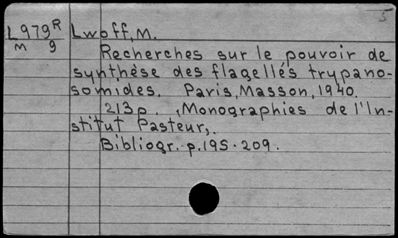 5
L979R Lwoff, M.
m 9
Recherches sur le pouvoir de
synthèse des flagellés trypano-
somides. Paris, Masson, 1940.
213p. (Monographies de l'In-
stitut Pasteur).
Bibliogr. p.195-209.